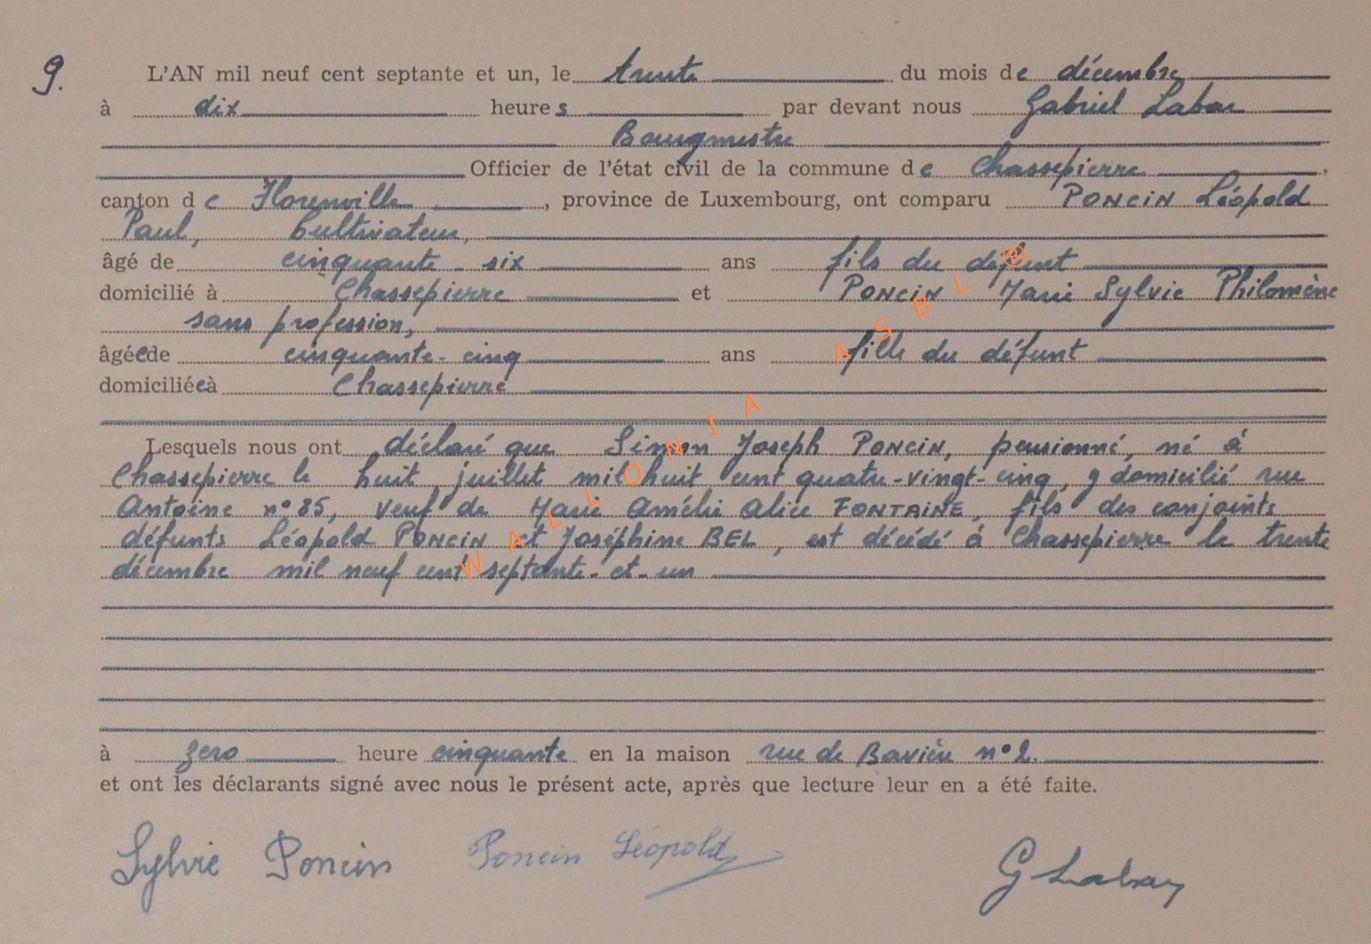 9. L'AN mil neuf cent septante et un, le trente du mois de décembre
à dix heures par devant nous Gabriel Labar
Bourgmestre
Officier de l'état civil de la commune de Chassepierre,
canton de Florenville, province de Luxembourg, ont comparu PONCIN Léopold
Paul, Cultivateur,
âgé de cinquante-six ans fils du défunt
domicilié à Chassepierre et PONCIN Marie Sylvie Philomène
sans profession,
âgée de cinquante-cinq ans fille du défunt
domiciliée à Chassepierre
Lesquels nous ont déclaré que Simon Joseph PONCIN, pensionné, né à
Chassepierre le huit juillet mil huit cent quatre-vingt-cinq, y domicilié rue
Antoine n° 85, veuf de Marie Amélie Alice FONTAINE, fils des conjoints
défunts Léopold PONCIN et Joséphine BEL, est décédé à Chassepierre le trente
décembre mil neuf cent septante-et-un
à zero heure cinquante en la maison rue de Bavière n° 2.
et ont les déclarants signé avec nous le présent acte, après que lecture leur en a été faite.
Sylvie Poncin Poncin Léopold G Labar
WALLONIA ASBL ®